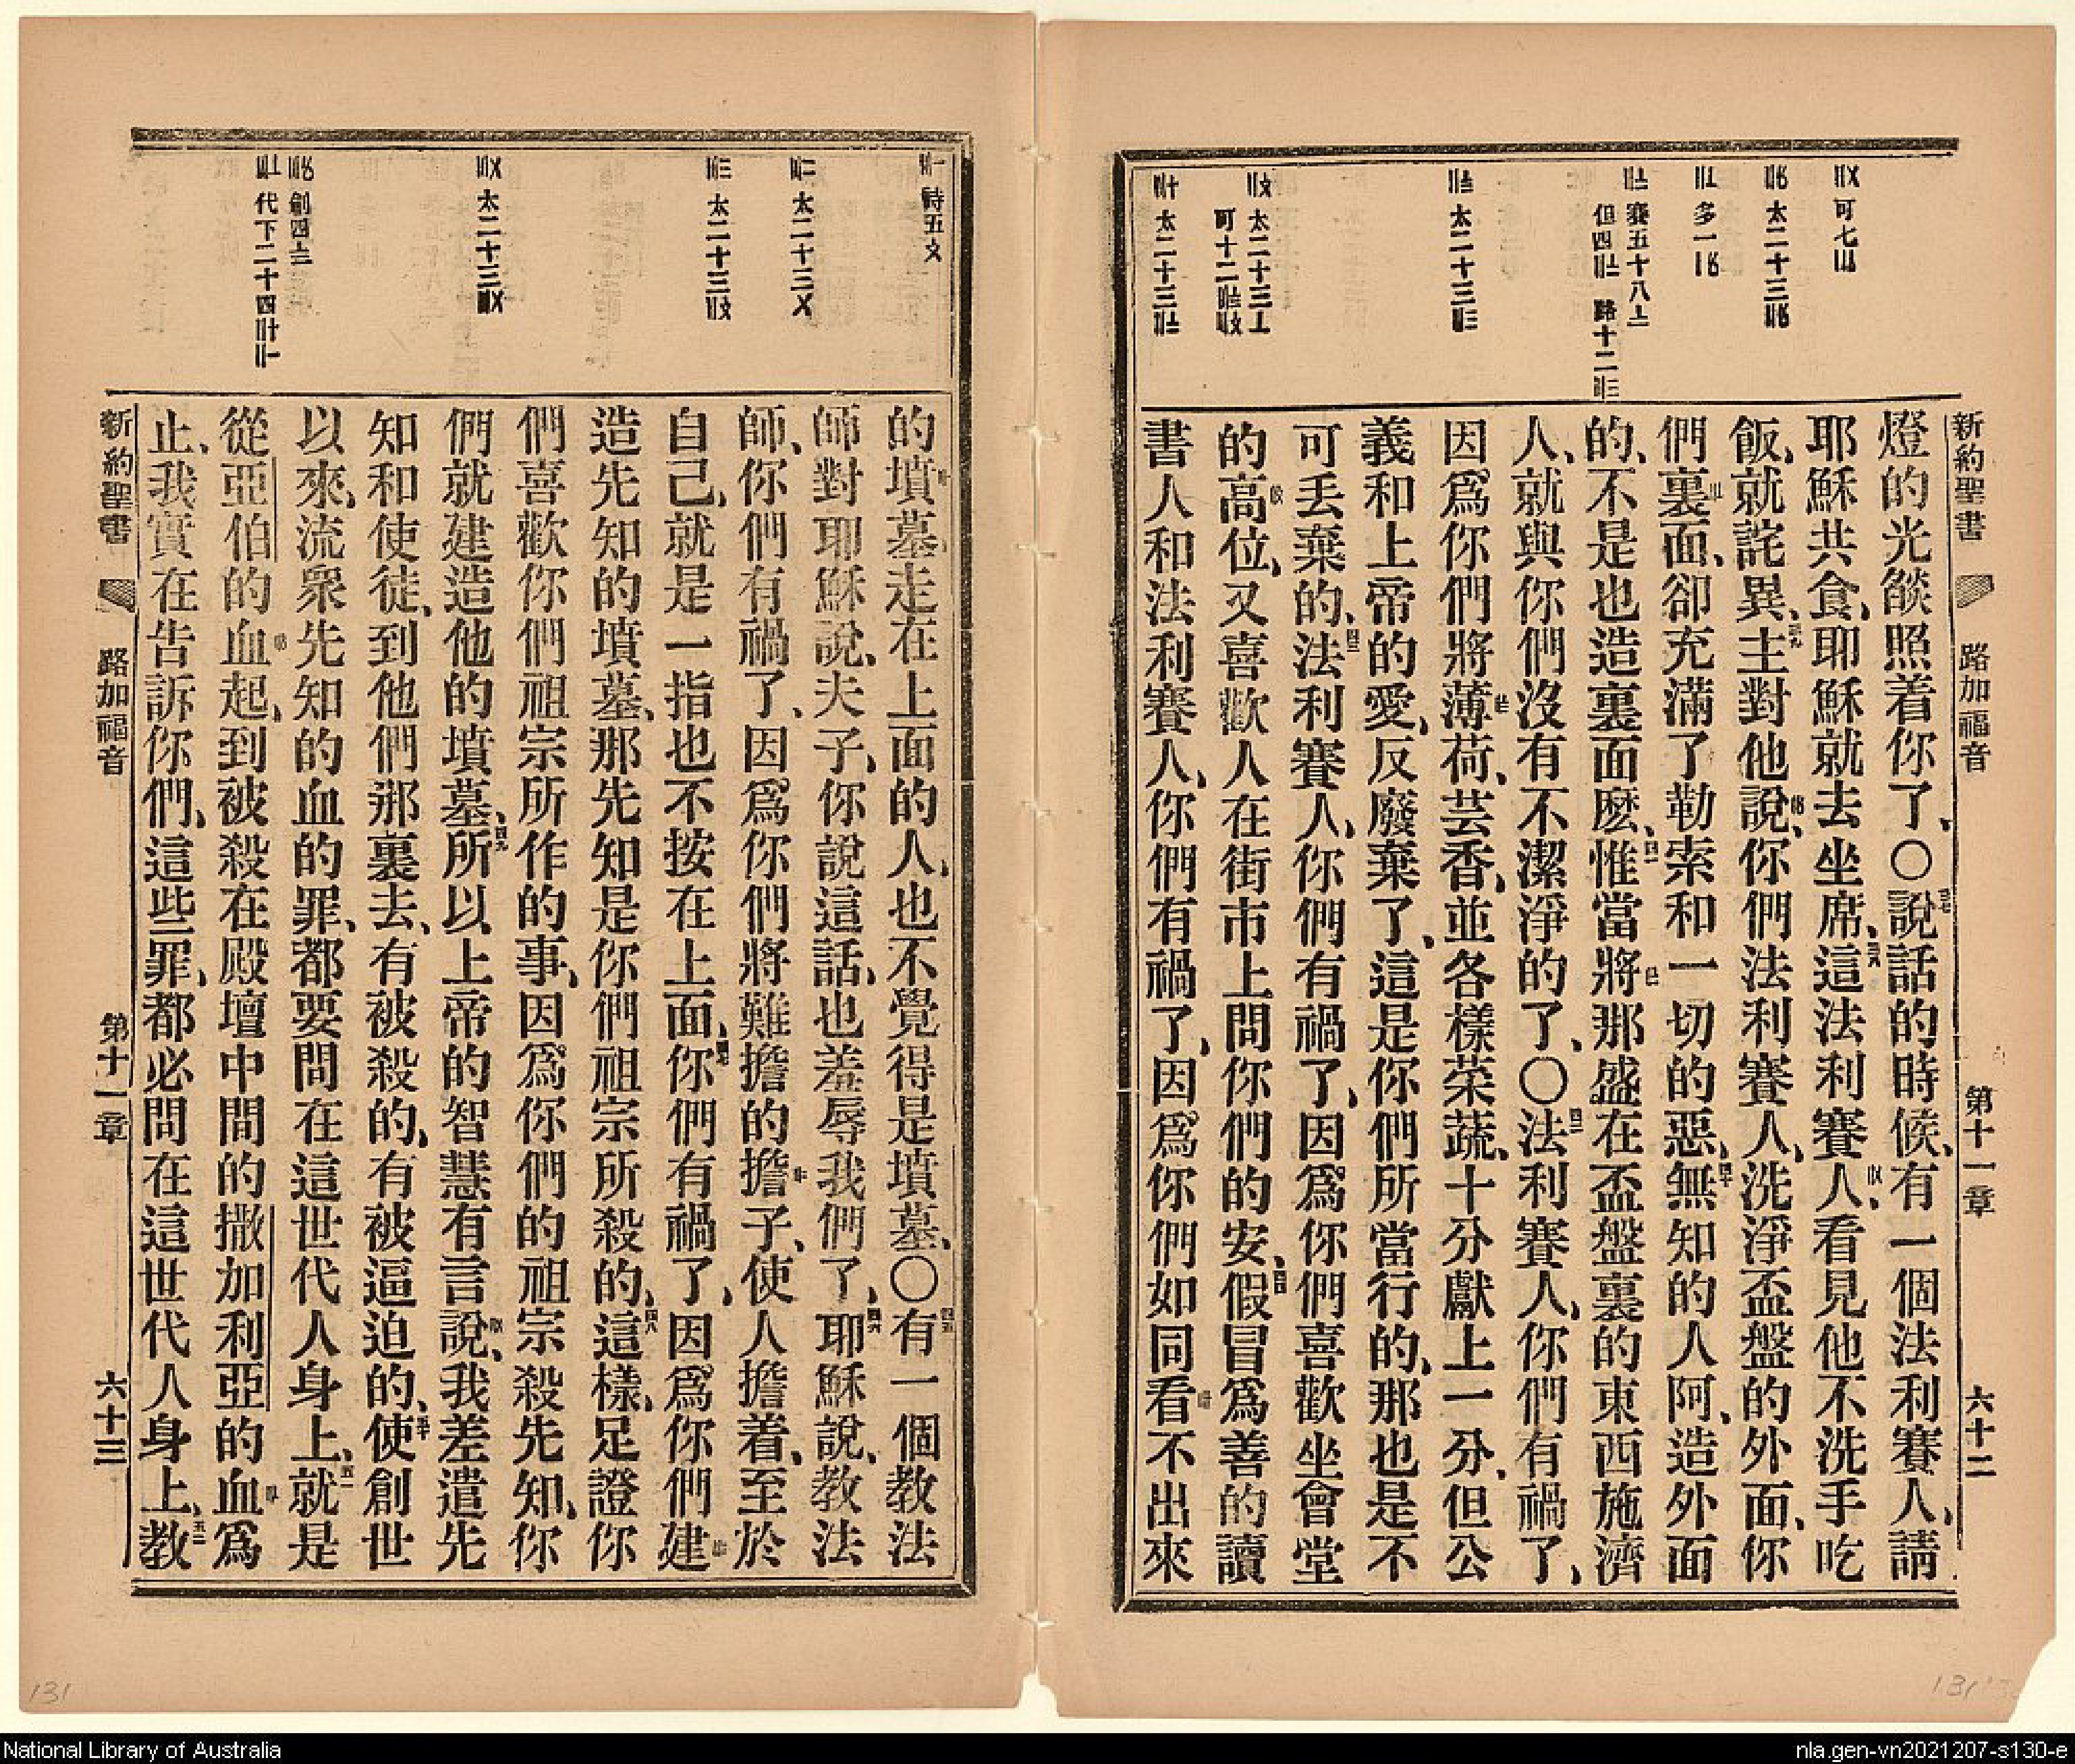 新約聖書 路加福音 第十一章 六十二
可七
太二十三
多一
賽五十八
但四 路十二
太二十三
太二十三
可十二
太二十三
燈的光燄照着你了、〇說話的時候、有一個法利賽人、請
耶穌共食、耶穌就去坐席、這法利賽人、看見他不洗手吃
飯、就詫異、主對他說、你們法利賽人、洗淨盃盤的外面、你
們裏面、卻充滿了勒索和一切的惡、無知的人阿、造外面
的、不是也造裏面麽、惟當將那盛在盃盤裏的東西施濟
人、就與你們沒有不潔淨的了、〇法利賽人、你們有禍了、
因爲你們將薄荷、芸香、並各樣菜蔬、十分獻上一分、但公
義和上帝的愛、反廢棄了、這是你們所當行的、那也是不
可丟棄的、法利賽人、你們有禍了、因爲你們喜歡坐會堂
的高位、又喜歡人在街市上問你們的安、假冒爲善的讀
書人和法利賽人、你們有禍了、因爲你們如同看不出來
詩五
太二十三
太二十三
太二十三
創四
代下二十四
的墳墓、走在上面的人、也不覺得是墳墓、〇有一個教法
師對耶穌說、夫子、你說這話、也羞辱我們了、耶穌說、教法
師、你們有禍了、因爲你們將難擔的擔子、使人擔着、至於
自己、就是一指也不按在上面、你們有禍了、因爲你們建
造先知的墳墓、那先知是你們祖宗所殺的、這樣、足證你
們喜歡你們祖宗所作的事、因爲你們的祖宗殺先知、你
們就建造他的墳墓、所以上帝的智慧有言說、我差遣先
知和使徒、到他們那裏去、有被殺的、有被逼迫的、使創世
以來、流衆先知的血的罪、都要問在這世代人身上、就是
從亞伯的血起、到被殺在殿壇中間的撒加利亞的血爲
止、我實在告訴你們、這些罪、都必問在這世代人身上、教
新約聖書 路加福音 第十一章 六十三
131
131
National Library of Australia
nla.gen-vn2021207-s130-e